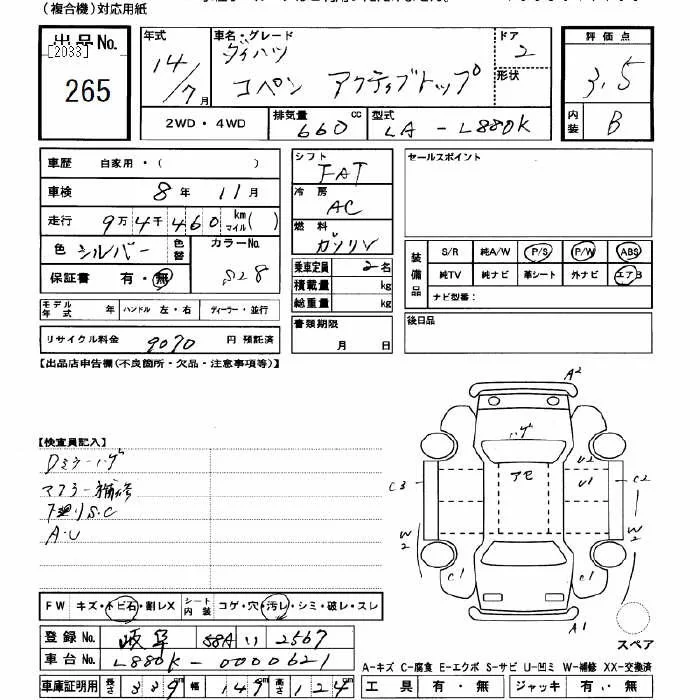 (複合機)対応用紙
出品No. 年式 車名・グレード ドア 評価点
[2033] ダイハツ 2
265 14/7月 コペン アクティブトップ 形状 3.5
2WD・4WD 排気量 660 cc 型式 LA-L880K 内装 B
車歴 自家用・( ) シフト FAT セールスポイント
車検 8年 11月 冷房 AC
走行 9万4千460 km マイル( ) 燃料 ガソリン
色 シルバー 色替 カラーNo. S28 装備品 S/R 純A/W P/S P/W ABS
保証書 有・無 乗車定員 2名 純TV 純ナビ 革シート 外ナビ エアB
積載量 kg ナビ型番:
モデル年式 年 ハンドル 左・右 ディーラー・並行 総重量 kg 後日品
リサイクル料金 9070 円 預託済 書類期限 月 日
【出品店申告欄(不良箇所・欠品・注意事項等)】
A2
【検査員記入】 ハゲ
Dミラーハゲ アモ U2
マフラー補修 C3 U1 C2
下廻りS.C W2 W2
A.U
C1 C1
FW キズ・トビ石・割レX シート内装 コゲ・穴・汚レ・シミ・破レ・スレ
登録No. 岐阜 58A い 2567 A1 スペア
車台No. L880K-0000621 A-キズ C-腐食 E-エクボ S-サビ U-凹ミ W-補修 XX-交換済
車庫証明用 長さ 339cm 幅 147cm 高さ 124cm 工具 有・無 ジャッキ 有・無